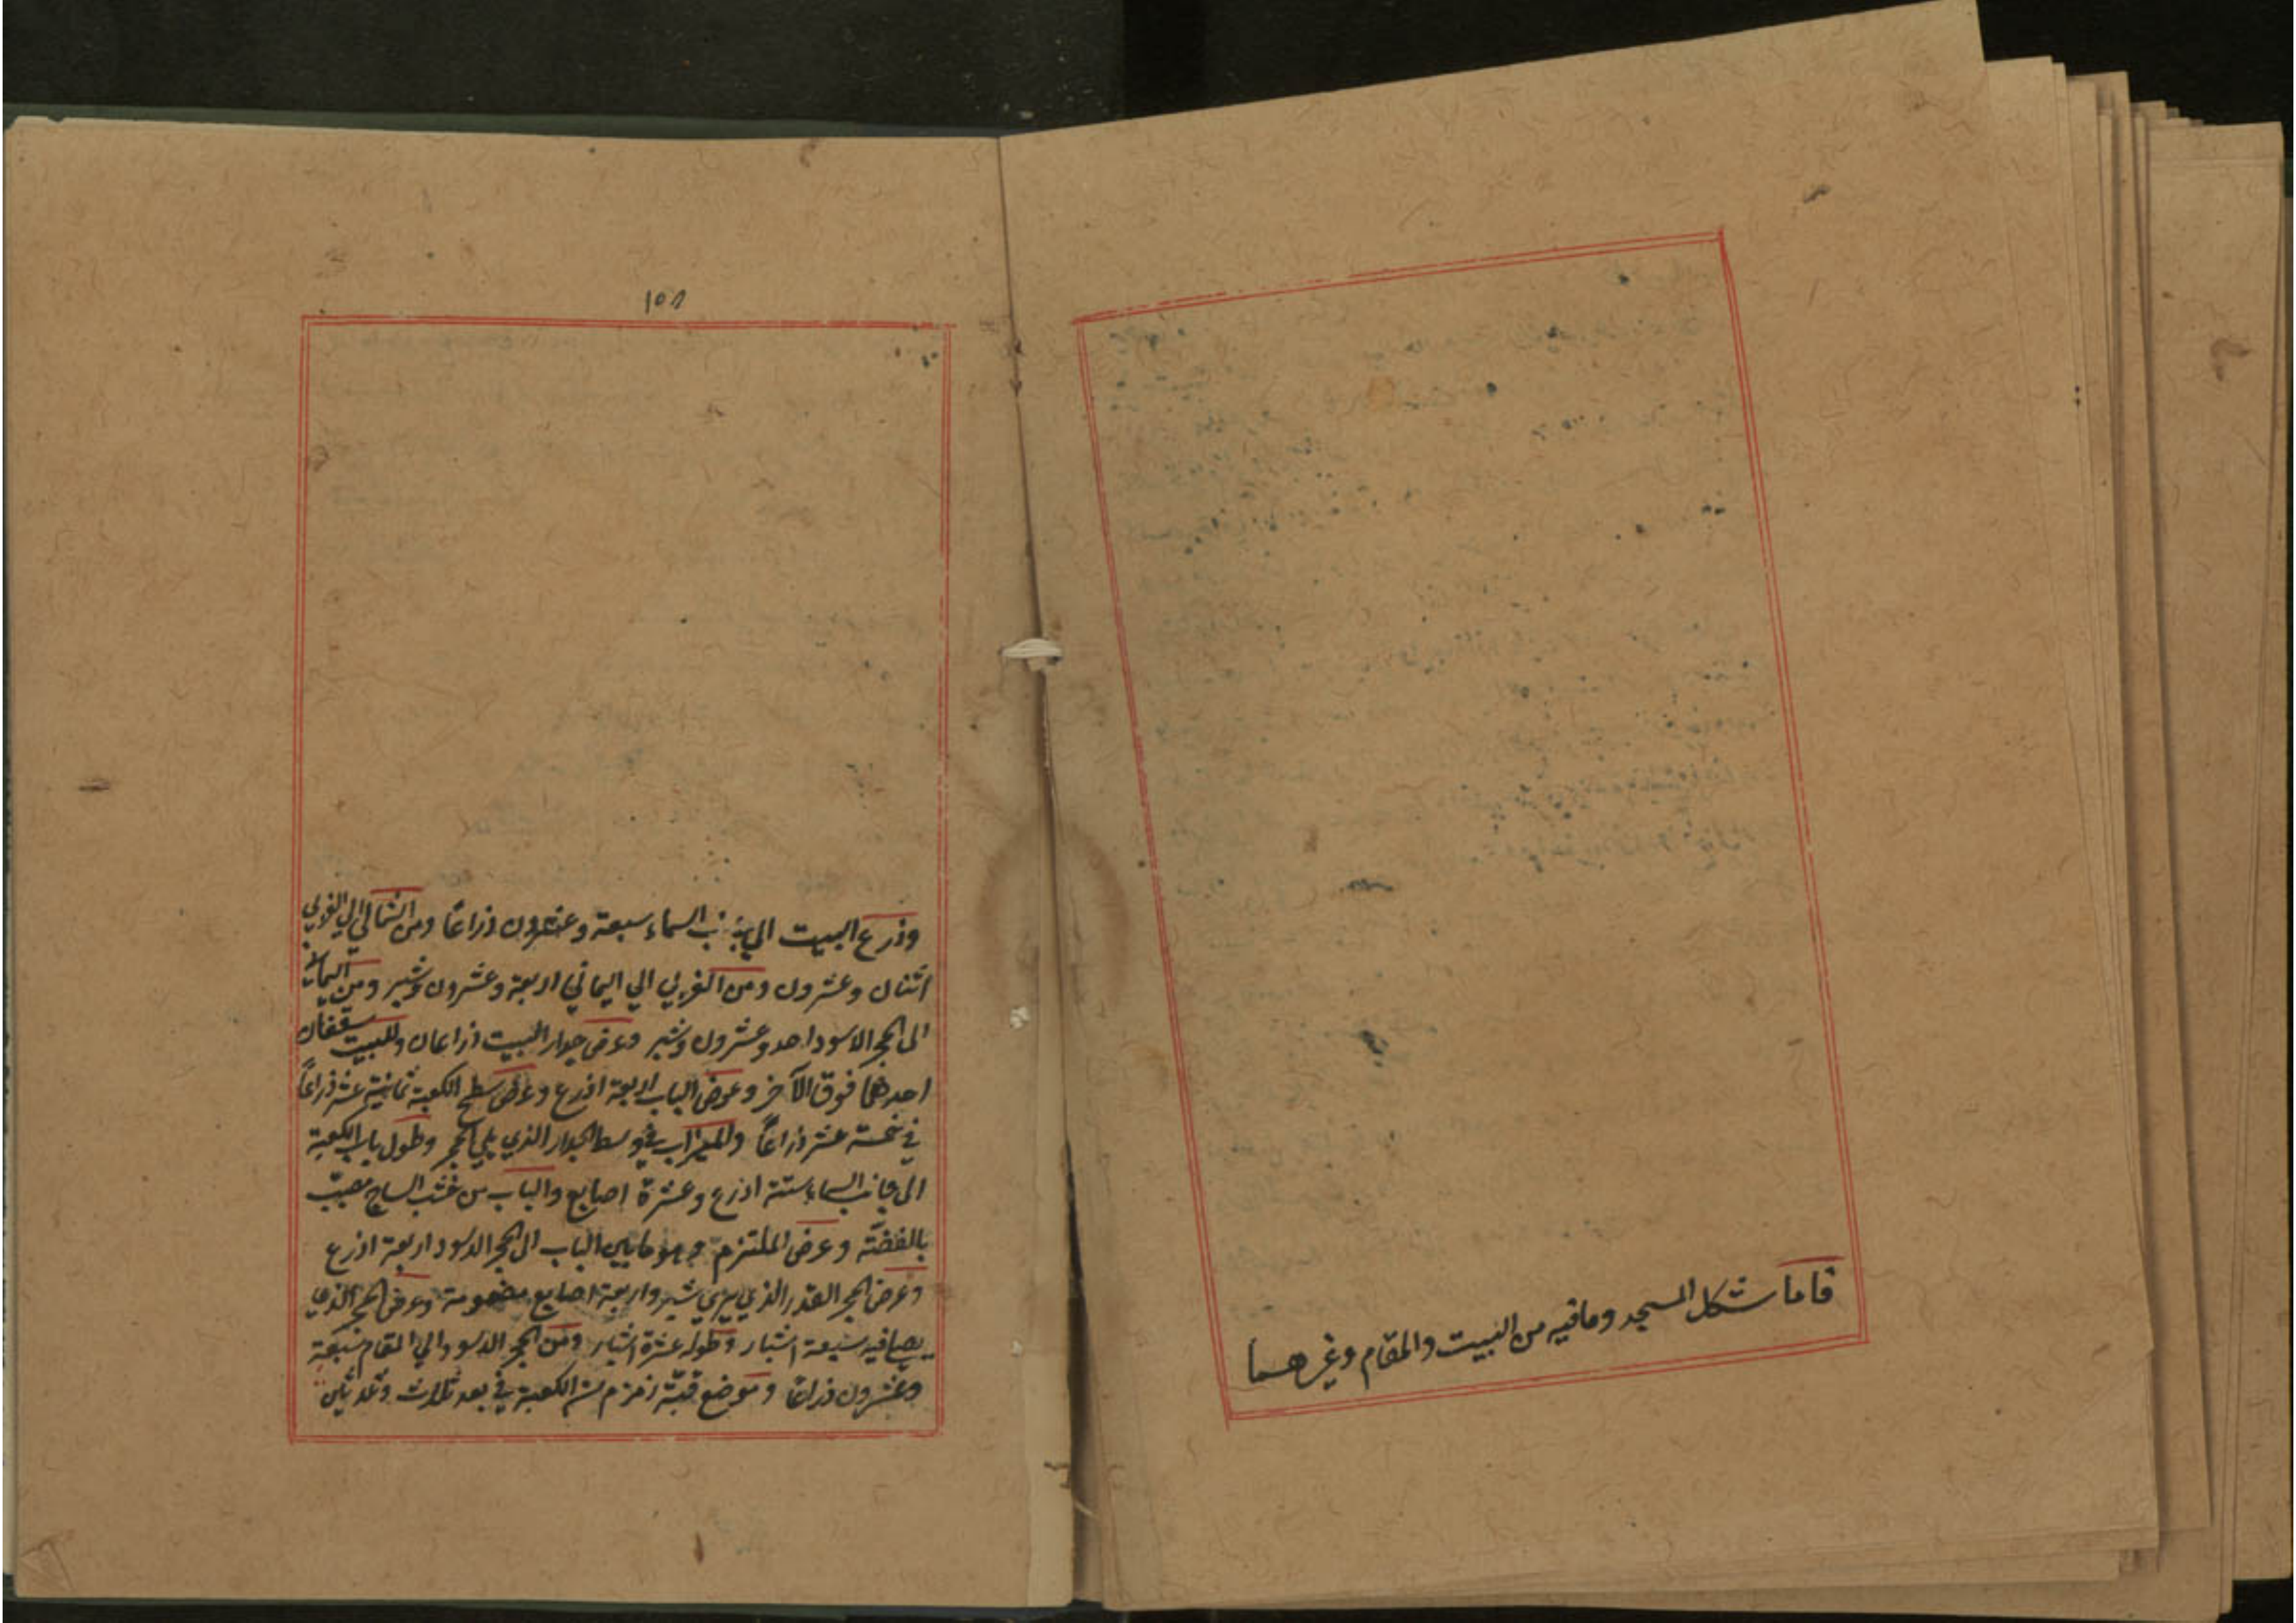 فاما شكل المسجد ومافيه من البيت والمقام وغيرهما
١٥٨
وذرع البيت الي جانب السماء سبعة وعشرون ذراعًا ومن الشمالي الي الغربي
اثنان وعشرون ومن الغربي الي اليماني اربعة وعشرون وشبر ومن اليماني
الى الحجر الاسود احد وعشرون وشبر وعرض جدار البيت ذراعان وللبيت سقفان
احدهما فوق الآخر وعرض الباب اربعة اذرع وعرض سطح الكعبة ثمانية عشر ذراعًا
في خمسة عشر ذراعًا والميزاب في وسط الجدار الذي يلي الحجر وطول باب الكعبة
الى جانب السماء ستة اذرع وعشرة اصابع والباب من خشب الساج مضبّب
بالفضّة وعرض الملتزم وهو مابين الباب الى الحجر الاسود اربعة اذرع
وعرض الحجر القدر الذي يري شبر واربعة اصابع مضمومة وعرض الحجر الذي
يصلى فيه سبعة اشبار وطوله عشرة اشبار ومن الحجر الاسود الي المقام سبعة
وعشرون ذراعًا وموضع قبّة زمزم من الكعبة في بعد ثلاث وثلاثين